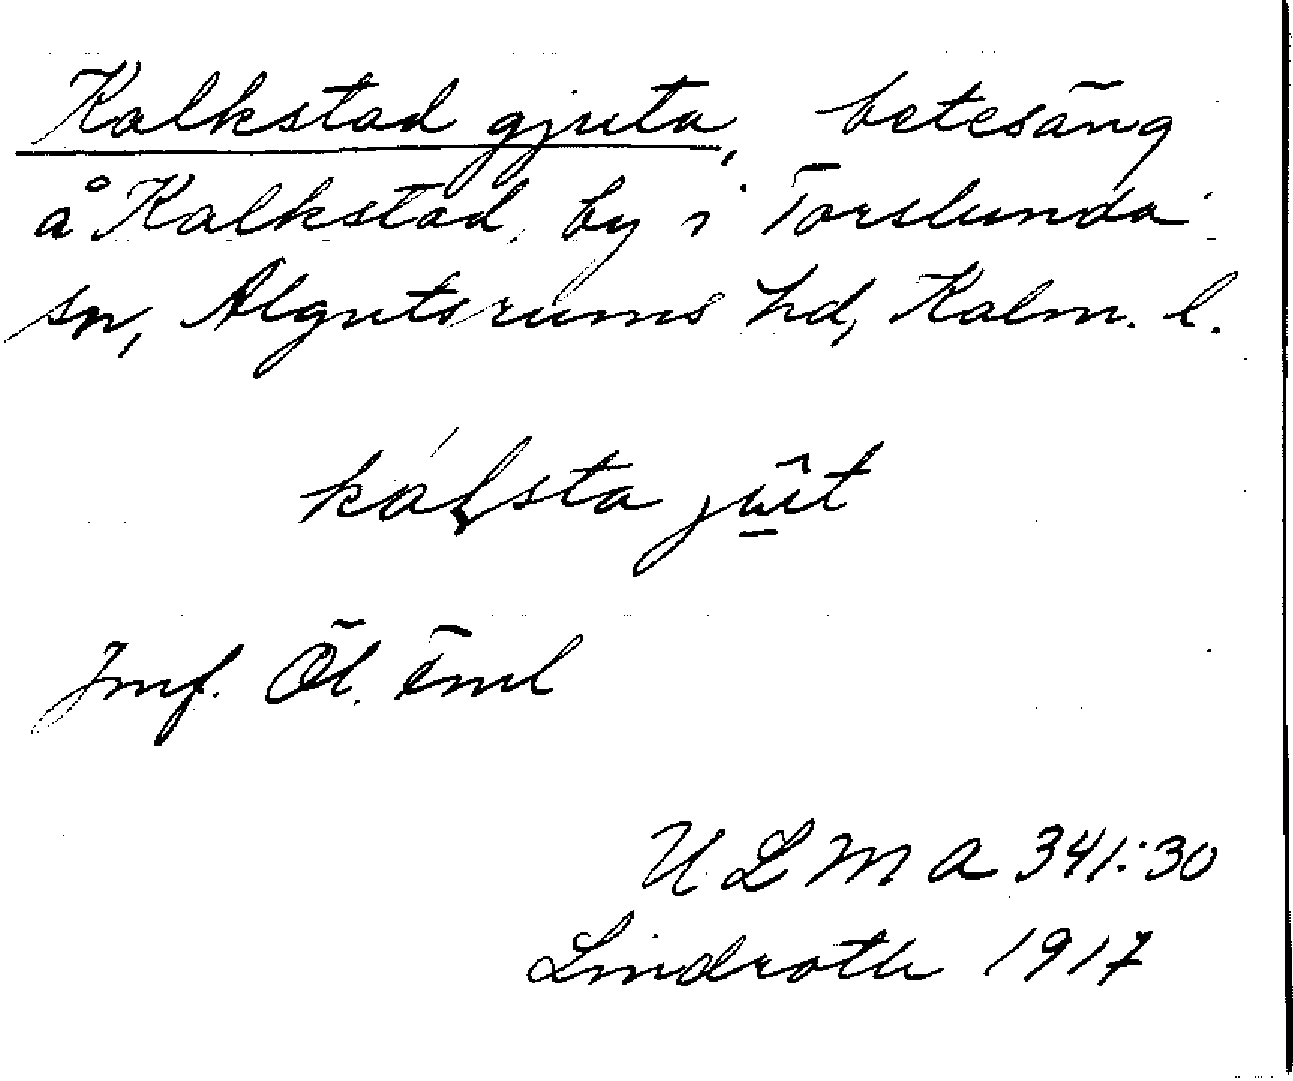 Kalkstad gjuta, betesäng
å Kalkstad, by i Torslunda
sn, Algutsrums hd, Kalm. l.
kálsta jût
Imf. Öl. Eml
ULMA 341:30
Lindroth 1917